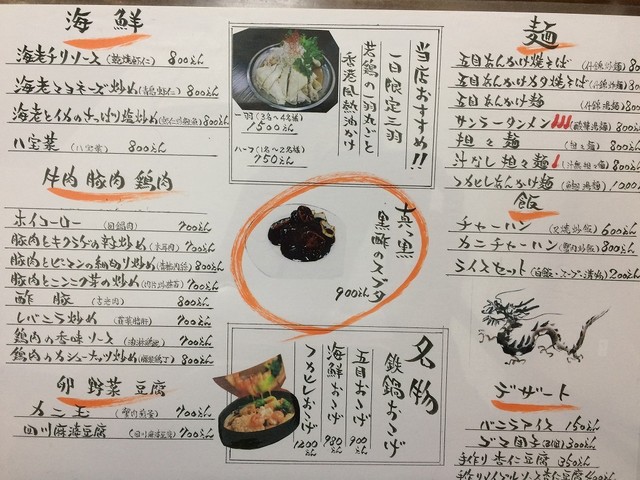 海鮮
海老チリソース(乾焼虾仁) 800えん
海老とマヨネーズ炒め 800えん
海老とイカのさっぱり塩炒め 800えん
八宝菜 (八宝菜) 800えん
牛肉 豚肉 鶏肉
ホイコーロー (回鍋肉) 700えん
豚肉とキクラゲの卵炒め(木耳肉) 700えん
豚肉とピーマンの細切り炒め(青椒肉絲) 800えん
豚肉とニンニク芽の炒め 700えん
酢豚 (古老肉) 800えん
レバニラ炒め 700えん
鶏肉の香味ソース 700えん
鶏肉のカシューナッツ炒め 800えん
卵 野菜 豆腐
カニ玉 700えん
四川麻婆豆腐 (四川麻婆豆腐) 700えん
当店おすすめ!!
一日限定三羽
若鶏の一羽丸ごと
香港風熱油かけ
一羽(3名〜4名様)
1500えん
ハーフ(1名〜2名様)
750えん
真っ黒
黒酢のスブタ
900えん
名物
鉄鍋おこげ
五目おこげ 900えん
海鮮おこげ 980えん
フカヒレおこげ 1200えん
麺
五目あんかけ焼きそば (什錦炒麺)
五目あんかけカタ焼きそば (什錦炒麺)
五目あんかけ麺 (什錦湯麺)
サンラータンメン (酸辣湯麺)
担々麺 (担々麺)
汁なし担々麺
フカヒレあんかけ麺
飯
チャーハン (叉焼炒飯) 600えん
カニチャーハン (蟹肉炒飯) 800えん
ライスセット(白飯・スープ・漬物) 200えん
デザート
バニラアイス 150えん
ゴマ団子(3個) 300えん
手作り杏仁豆腐 350えん